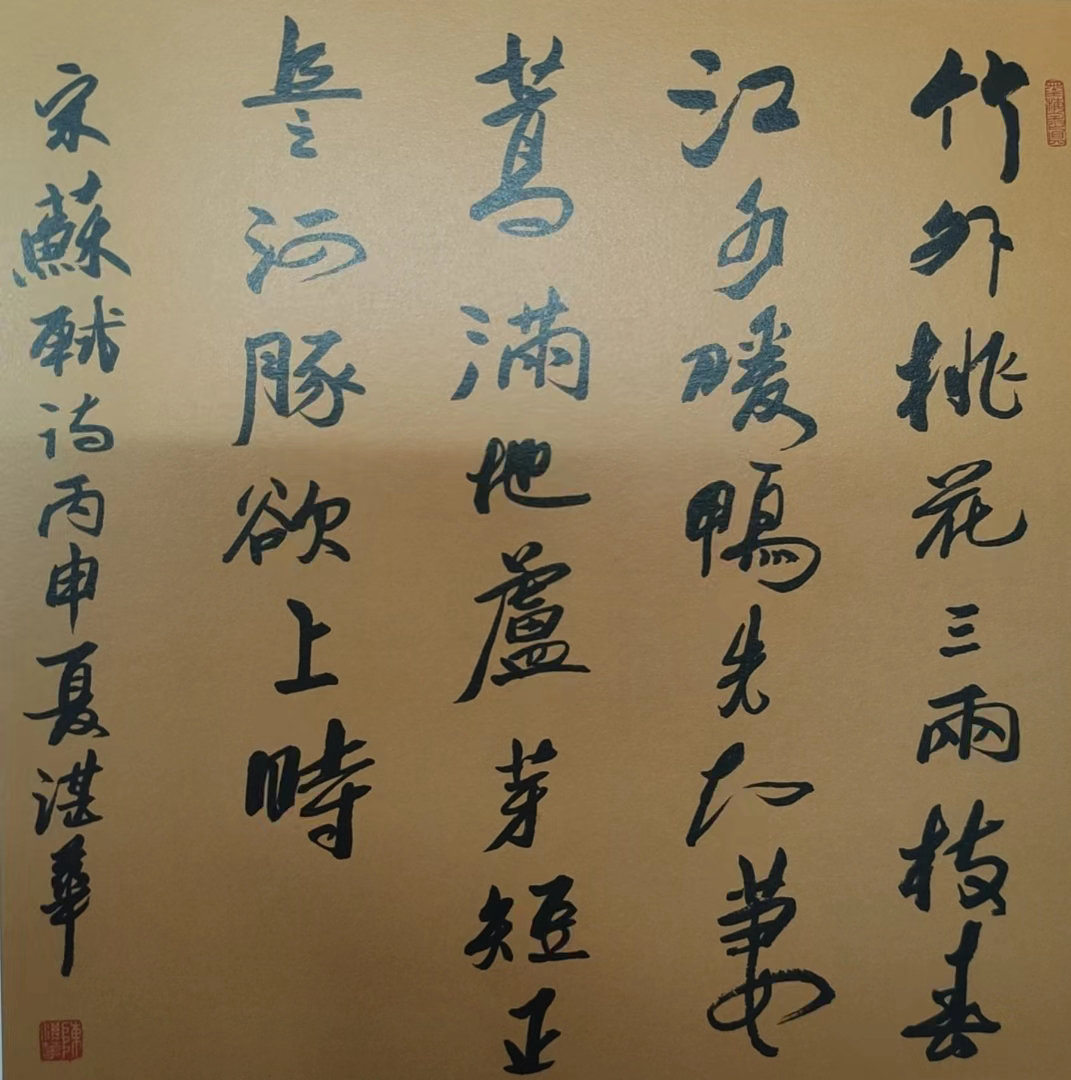 竹外桃花三兩枝春
江水暖鴨先知蔞
蒿滿地蘆芽短正
是河豚欲上時
宋蘇軾詩丙申夏湛華